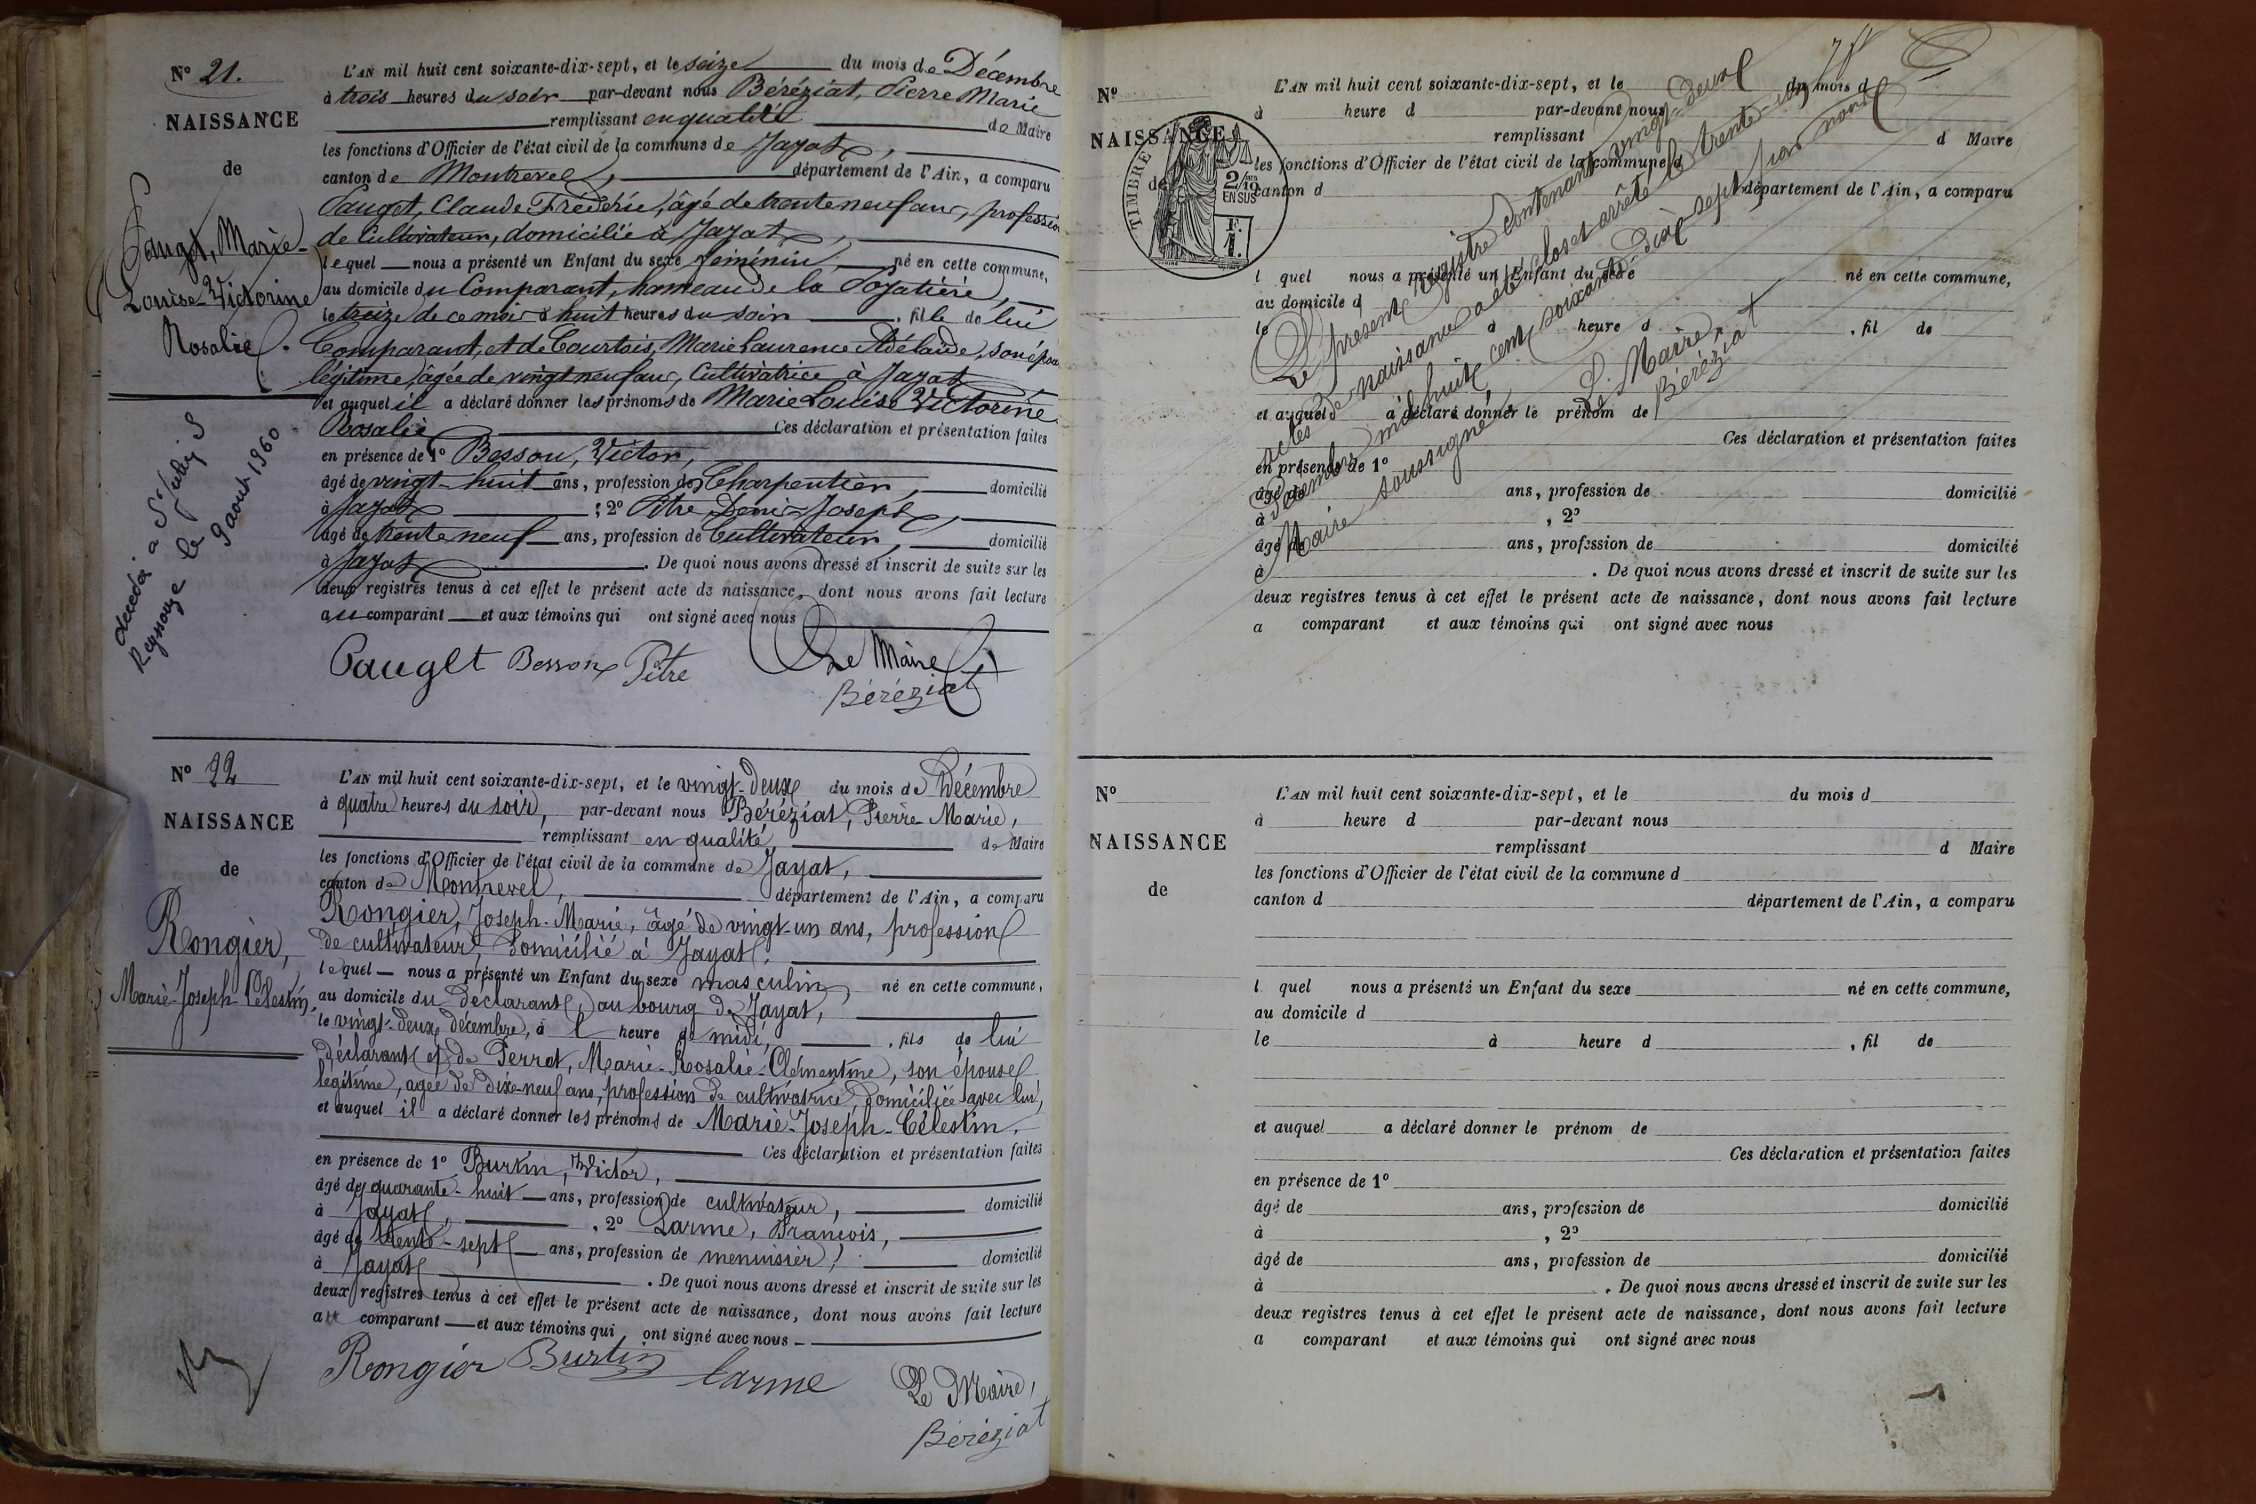 N° 21.
NAISSANCE
de
Pauget, Marie-
Louise-Victorine
Rosalie.
décédée à St Julien s
Reyssouze le 9 aout 1960
L'AN mil huit cent soixante-dix-sept, et le seize du mois de Décembre
à trois heures du soir par-devant nous Béréziat, Pierre Marie
remplissant en qualité de Maire
les fonctions d'Officier de l'état civil de la commune de Jayat,
canton de Montrevel, département de l'Ain, a comparu
Pauget, Claude Frédéric, âgé de trente neuf ans, profession
de Cultivateur, domicilié à Jayat,
lequel nous a présenté un Enfant du sexe féminin, né en cette commune,
au domicile du Comparant, hameau de la Poyatière,
le treize de ce mois à huit heures du soir, fille de lui
Comparant, et de Courtois, Marie Laurence Adélaïde, son épouse
légitime, âgée de vingt neuf ans, Cultivatrice à Jayat
et auquel il a déclaré donner les prénoms de Marie Louise Victorine
Rosalie Ces déclaration et présentation faites
en présence de 1° Besson, Victor,
âgé de vingt-huit ans, profession de Charpentier, domicilié
à Jayat ; 2° Pitre Denis-Joseph,
âgé de trente neuf ans, profession de Cultivateur, domicilié
à Jayat. De quoi nous avons dressé et inscrit de suite sur les
deux registres tenus à cet effet le présent acte de naissance, dont nous avons fait lecture
au comparant et aux témoins qui ont signé avec nous
Pauget Besson Pitre Le Maire
Béréziat
N° 22
NAISSANCE
de
Rongier,
Marie-Joseph-Célestin.
L'AN mil huit cent soixante-dix-sept, et le vingt-deux du mois de Décembre
à quatre heures du soir, par-devant nous Béréziat, Pierre-Marie,
remplissant en qualité de Maire
les fonctions d'Officier de l'état civil de la commune de Jayat,
canton de Montrevel, département de l'Ain, a comparu
Rongier, Joseph-Marie, âgé de vingt-un ans, profession
de cultivateur, domicilié à Jayat,
lequel nous a présenté un Enfant du sexe masculin, né en cette commune,
au domicile du déclarant, au bourg de Jayat,
le vingt-deux décembre, à l heure de midi, fils de lui
déclarant et de Perrot, Marie-Rosalie-Clémentine, son épouse
légitime, agée de dix-neuf ans, profession de cultivatrice, domiciliée avec lui,
et auquel il a déclaré donner les prénoms de Marie-Joseph-Célestin.
Ces déclaration et présentation faites
en présence de 1° Burtin, Victor,
âgé de quarante-huit ans, profession de cultivateur, domicilié
à Jayat, , 2° Larme, François,
âgé de trente-sept ans, profession de menuisier, domicilié
à Jayat. De quoi nous avons dressé et inscrit de suite sur les
deux registres tenus à cet effet le présent acte de naissance, dont nous avons fait lecture
au comparant et aux témoins qui ont signé avec nous
Rongier Burtin Larme Le Maire,
Béréziat
N°
NAISSANCE
de
TIMBRE
2/10
EN SUS
F.
1.
L'AN mil huit cent soixante-dix-sept, et le du mois d
à heure d par-devant nous
remplissant d Maire
les fonctions d'Officier de l'état civil de la commune d
canton d département de l'Ain, a comparu
l quel nous a présenté un Enfant du sexe né en cette commune,
au domicile d
le à heure d , fil de
et auquel a déclaré donner le prénom de
Ces déclaration et présentation faites
en présence de 1°
âgé de ans, profession de domicilié
à , 2°
âgé de ans, profession de domicilié
à . De quoi nous avons dressé et inscrit de suite sur les
deux registres tenus à cet effet le présent acte de naissance, dont nous avons fait lecture
a comparant et aux témoins qui ont signé avec nous
Le présent registre contenant vingt-deux
actes de naissance a été clos et arrêté le trente-un
Décembre mil huit cent soixante-dix-sept par nous
Maire soussigné.
Le Maire,
Béréziat
N°
NAISSANCE
de
L'AN mil huit cent soixante-dix-sept, et le du mois d
à heure d par-devant nous
remplissant d Maire
les fonctions d'Officier de l'état civil de la commune d
canton d département de l'Ain, a comparu
l quel nous a présenté un Enfant du sexe né en cette commune,
au domicile d
le à heure d , fil de
et auquel a déclaré donner le prénom de
Ces déclaration et présentation faites
en présence de 1°
âgé de ans, profession de domicilié
à , 2°
âgé de ans, profession de domicilié
à . De quoi nous avons dressé et inscrit de suite sur les
deux registres tenus à cet effet le présent acte de naissance, dont nous avons fait lecture
a comparant et aux témoins qui ont signé avec nous